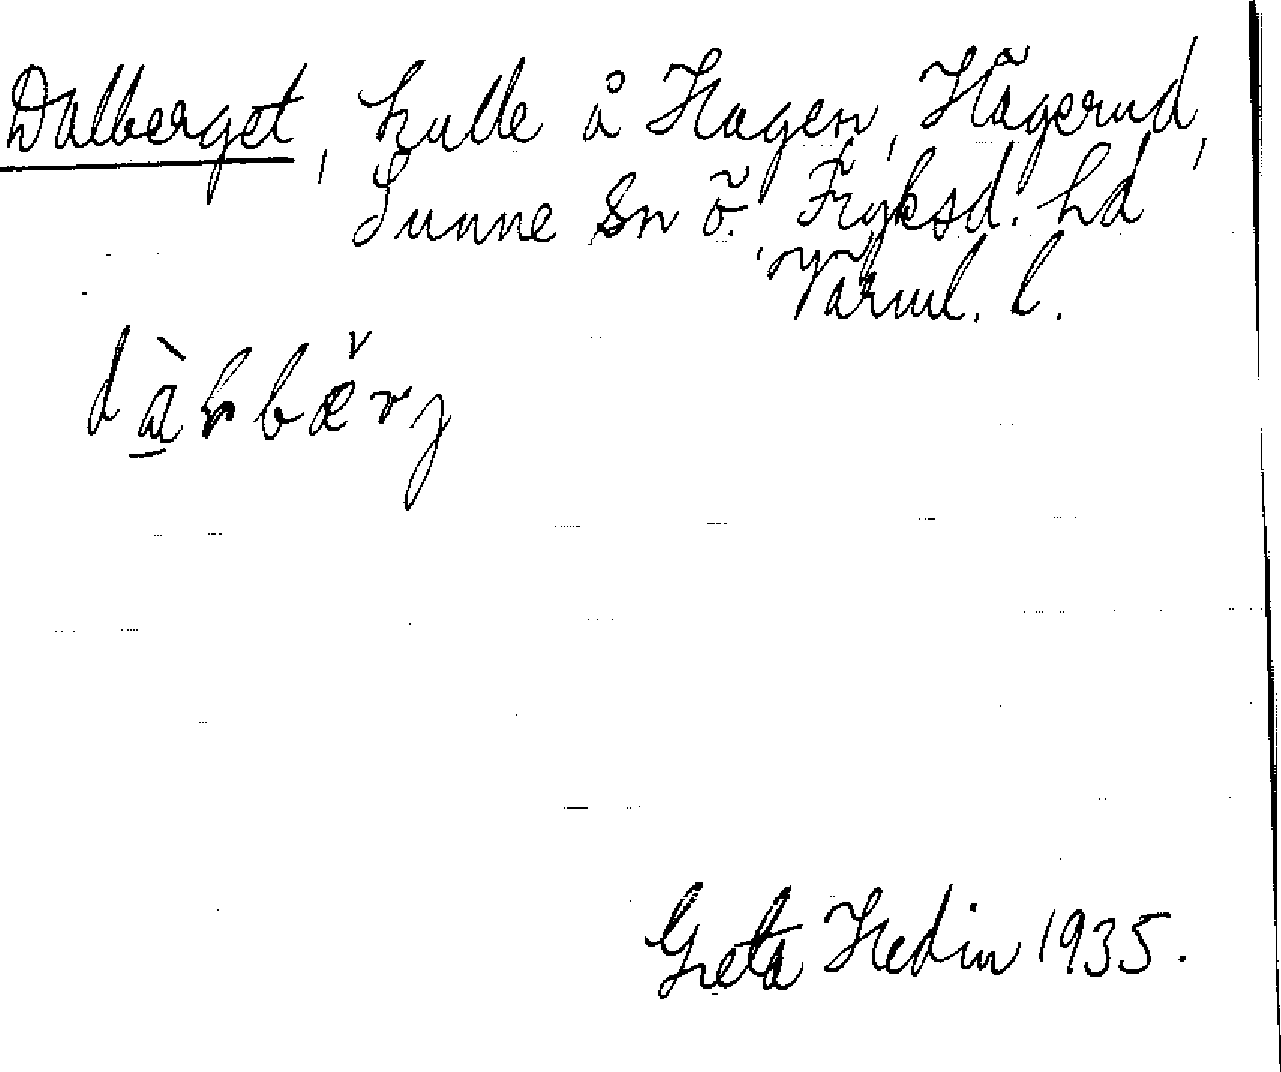 Dalberget, kulle å Hagen, Hägerud,
Sunne sn Ö. Fryksd. hd
Värml. l.
Greta Hedin 1935.